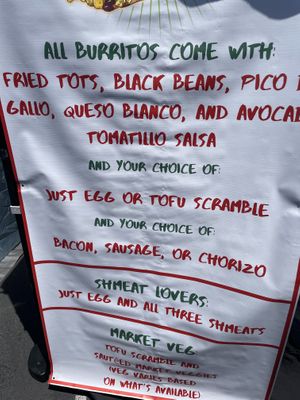 ALL BURRITOS COME WITH:
FRIED TOTS, BLACK BEANS, PICO D
GALLO, QUESO BLANCO, AND AVOCAD
TOMATILLO SALSA
AND YOUR CHOICE OF:
JUST EGG OR TOFU SCRAMBLE
AND YOUR CHOICE OF:
BACON, SAUSAGE, OR CHORIZO
SHMEAT LOVERS:
JUST EGG AND ALL THREE SHMEATS
MARKET VEG:
TOFU SCRAMBLE AND
SAUTEED MARKET VEGGIES
(VEG VARIES BASED
ON WHAT'S AVAILABLE)